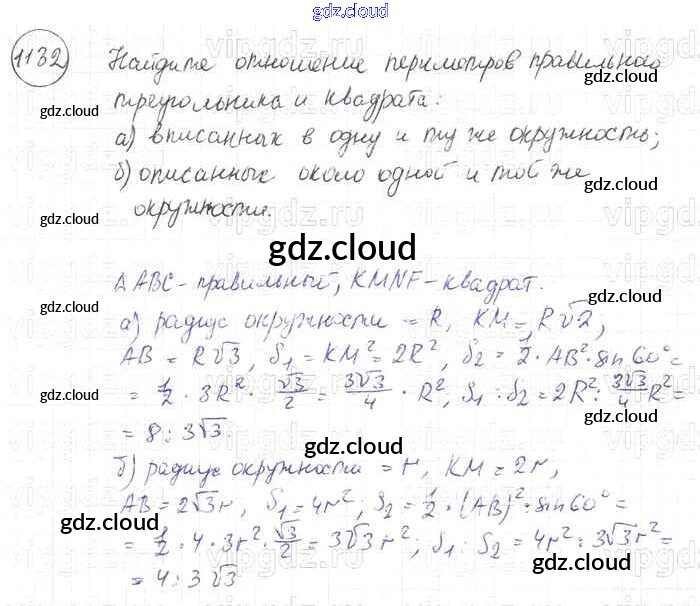 gdz.cloud
1132 Найдите отношение периметров правильного
треугольника и квадрата:
а) вписанных в одну и ту же окружность;
б) описанных около одной и той же
окружности.
gdz.cloud
Δ ABC - правильный, KMNF - квадрат.
а) радиус окружности = R, KM = R√2;
AB = R√3, S₁ = KM² = 2R², S₂ = 1/2 · AB² · sin 60° =
= 1/2 · 3R² · √3/2 = 3√3/4 · R², S₁ : S₂ = 2R² : 3√3/4 R² =
= 8 : 3√3.
б) радиус окружности = r, KM = 2r,
AB = 2√3 r, S₁ = 4r²; S₂ = 1/2 · (AB)² · sin 60° =
= 1/2 · 4 · 3r² · √3/2 = 3√3 r²; S₁ : S₂ = 4r² : 3√3 r² =
= 4 : 3√3